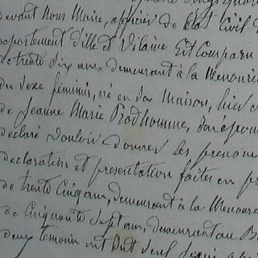 devant Nous Maire, officier de l'Etat Civil d
epartement d'ille et Vilaine Est Comparu
de trente six ans demeurant à la Menourie
du sexe feminin, né en sa Maison, hier a
de Jeanne Marie Prodhomme, son épouse
déclaré vouloir donner les prenoms
declaration et presentation faites en pr
de trente Cinq ans, demeurant à la Menour
de Cinquante sept ans, demeurant au B
deux temoin ont dit seul